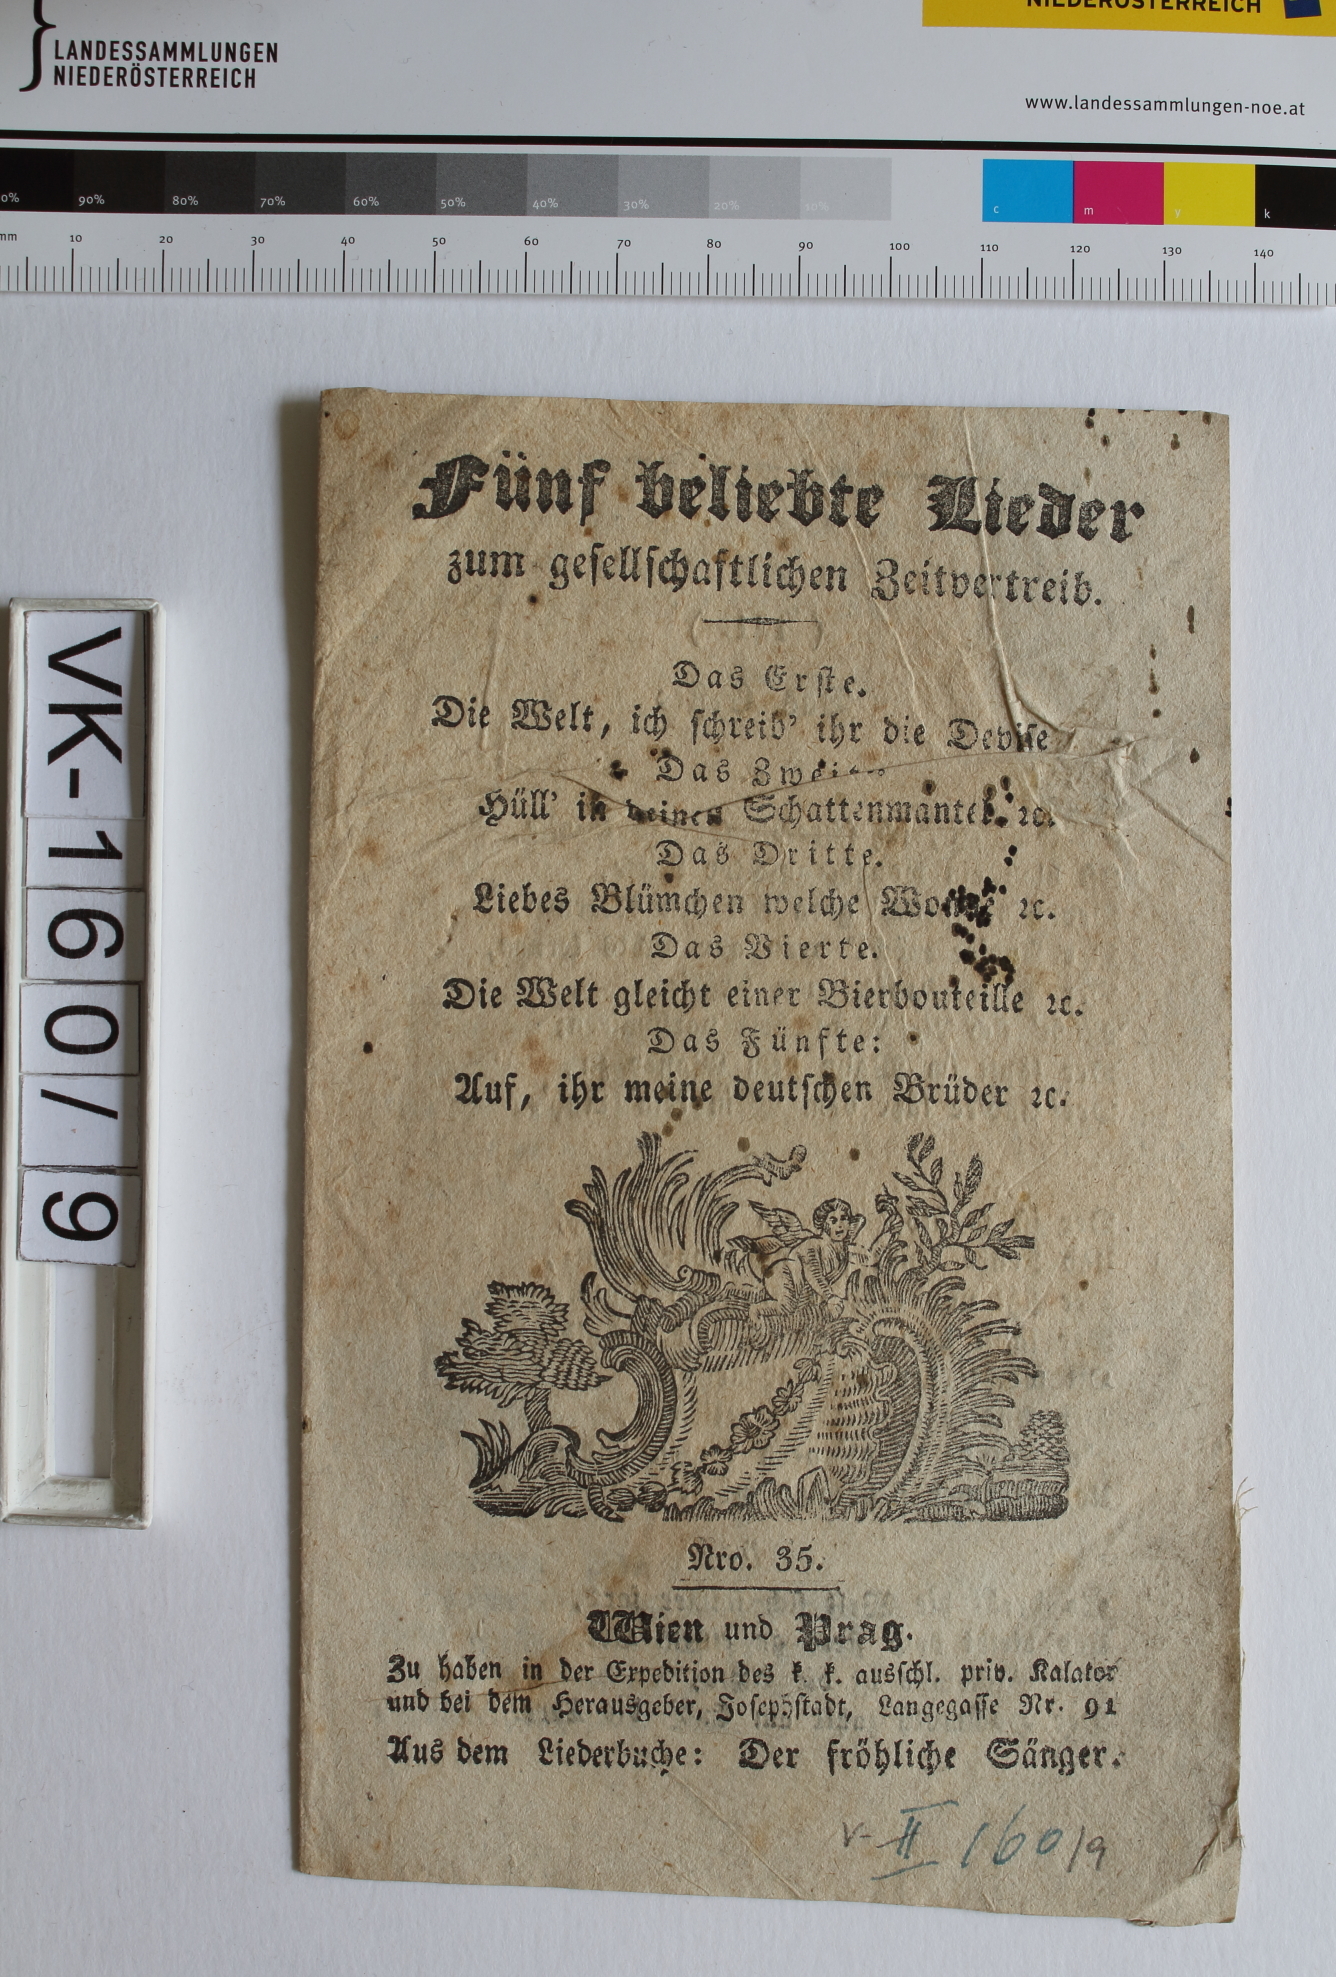 LANDESSAMMLUNGEN
NIEDERÖSTERREICH
NIEDERÖSTERREICH
www.landessammlungen-noe.at
90% 80% 70% 60% 50% 40% 30% 20% 10% c m y k
mm 10 20 30 40 50 60 70 80 90 100 110 120 130 140
VK-160/9
Fünf beliebte Lieder
zum gesellschaftlichen Zeitvertreib.
Das Erste.
Die Welt, ich schreib' ihr die Devise
Das Zweite
Hüll' in deinen Schattenmantel ꝛc.
Das Dritte.
Liebes Blümchen welche Wonne ꝛc.
Das Vierte.
Die Welt gleicht einer Bierbouteille ꝛc.
Das Fünfte:
Auf, ihr meine deutschen Brüder ꝛc.
Nro. 35.
Wien und Prag.
Zu haben in der Expedition des k. k. ausschl. priv. Kalator
und bei dem Herausgeber, Josephstadt, Langegasse Nr. 91
Aus dem Liederbuche: Der fröhliche Sänger.
V-II 160/9